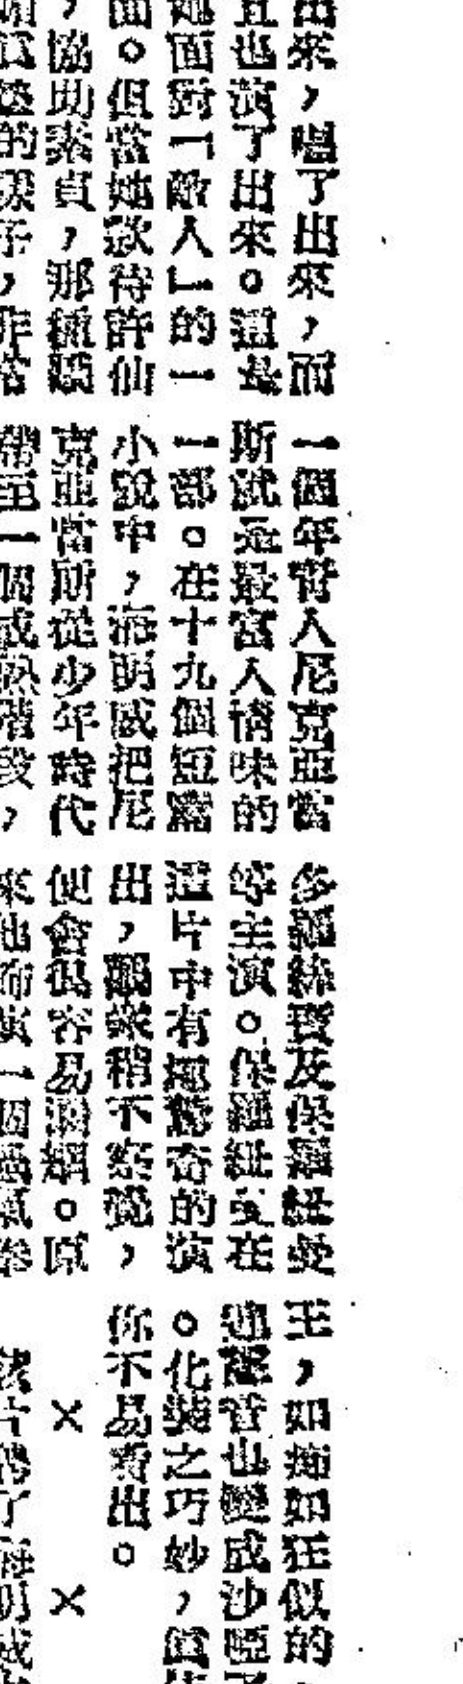 出來,了出來,而
且也演了出來。這是
她面對「敵人」的一
面。但當她款待許仙
,協助素貞,那種嬌
的樣子,非常
一個年青人尼克亞當
斯就是最富人情味的
一部。在十九個短篇
小說中,海明威把尼
克亞當斯從少年時代
帶至一個成熟階段,
多羅絲及保羅紐曼
等主演。保羅紐曼在
這片中有極驚奇的演
出,觀衆稍不察覺,
便會很容易。原
來他飾演一個過氣拳
王,如痴如狂似的,
連聲音也變成沙啞了
。化裝之巧妙,眞使
你不易看出。
× ×
該片了海明威